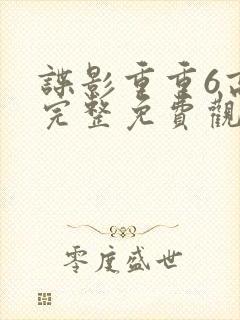 諜影重重6高
完整免費觀
零度盛世